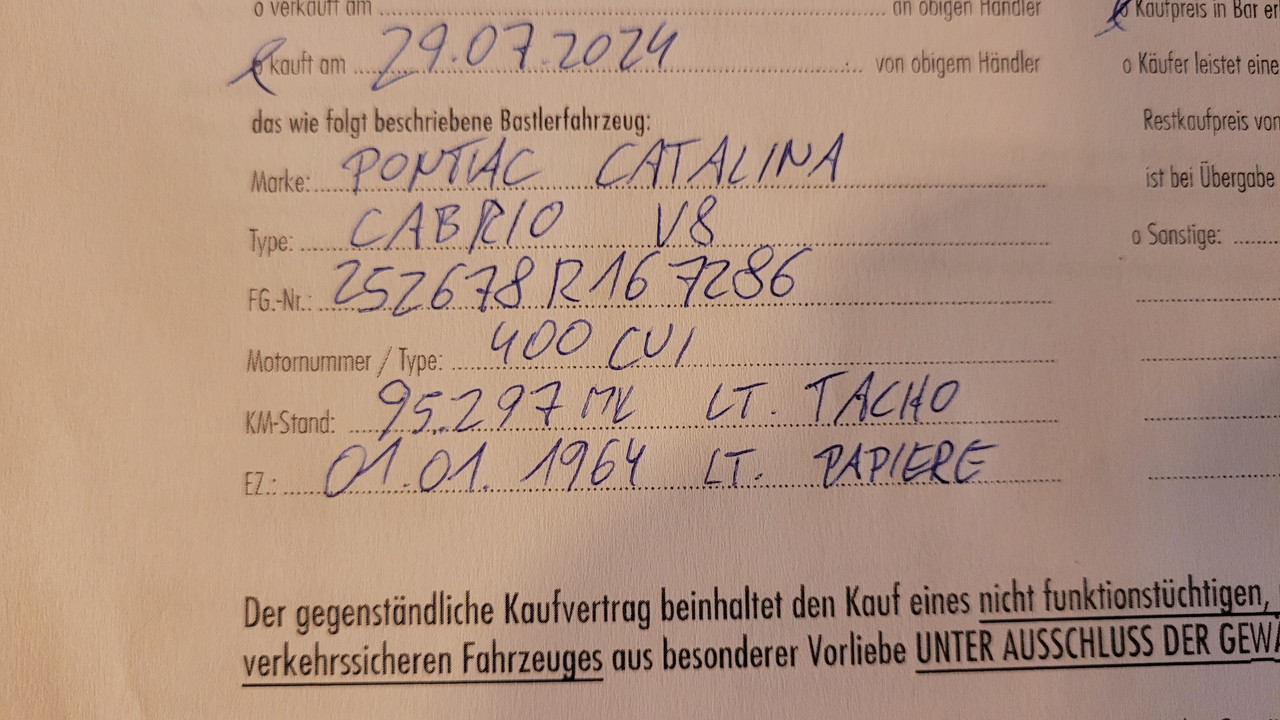 o verkauft am ........ an obigen Händler
o kauft am 29.07.2024 von obigem Händler
das wie folgt beschriebene Bastlerfahrzeug:
Marke: PONTIAC CATALINA
Type: CABRIO V8
FG.-Nr.: 252678R167286
Motornummer / Type: 400 CUI
KM-Stand: 95.297 ML LT. TACHO
EZ.: 01.01.1964 LT. PAPIERE
Der gegenständliche Kaufvertrag beinhaltet den Kauf eines nicht funktionstüchtigen,
verkehrssicheren Fahrzeuges aus besonderer Vorliebe UNTER AUSSCHLUSS DER GEWÄ
o Kaufpreis in Bar er
o Käufer leistet eine
Restkaufpreis von
ist bei Übergabe
o Sonstige: